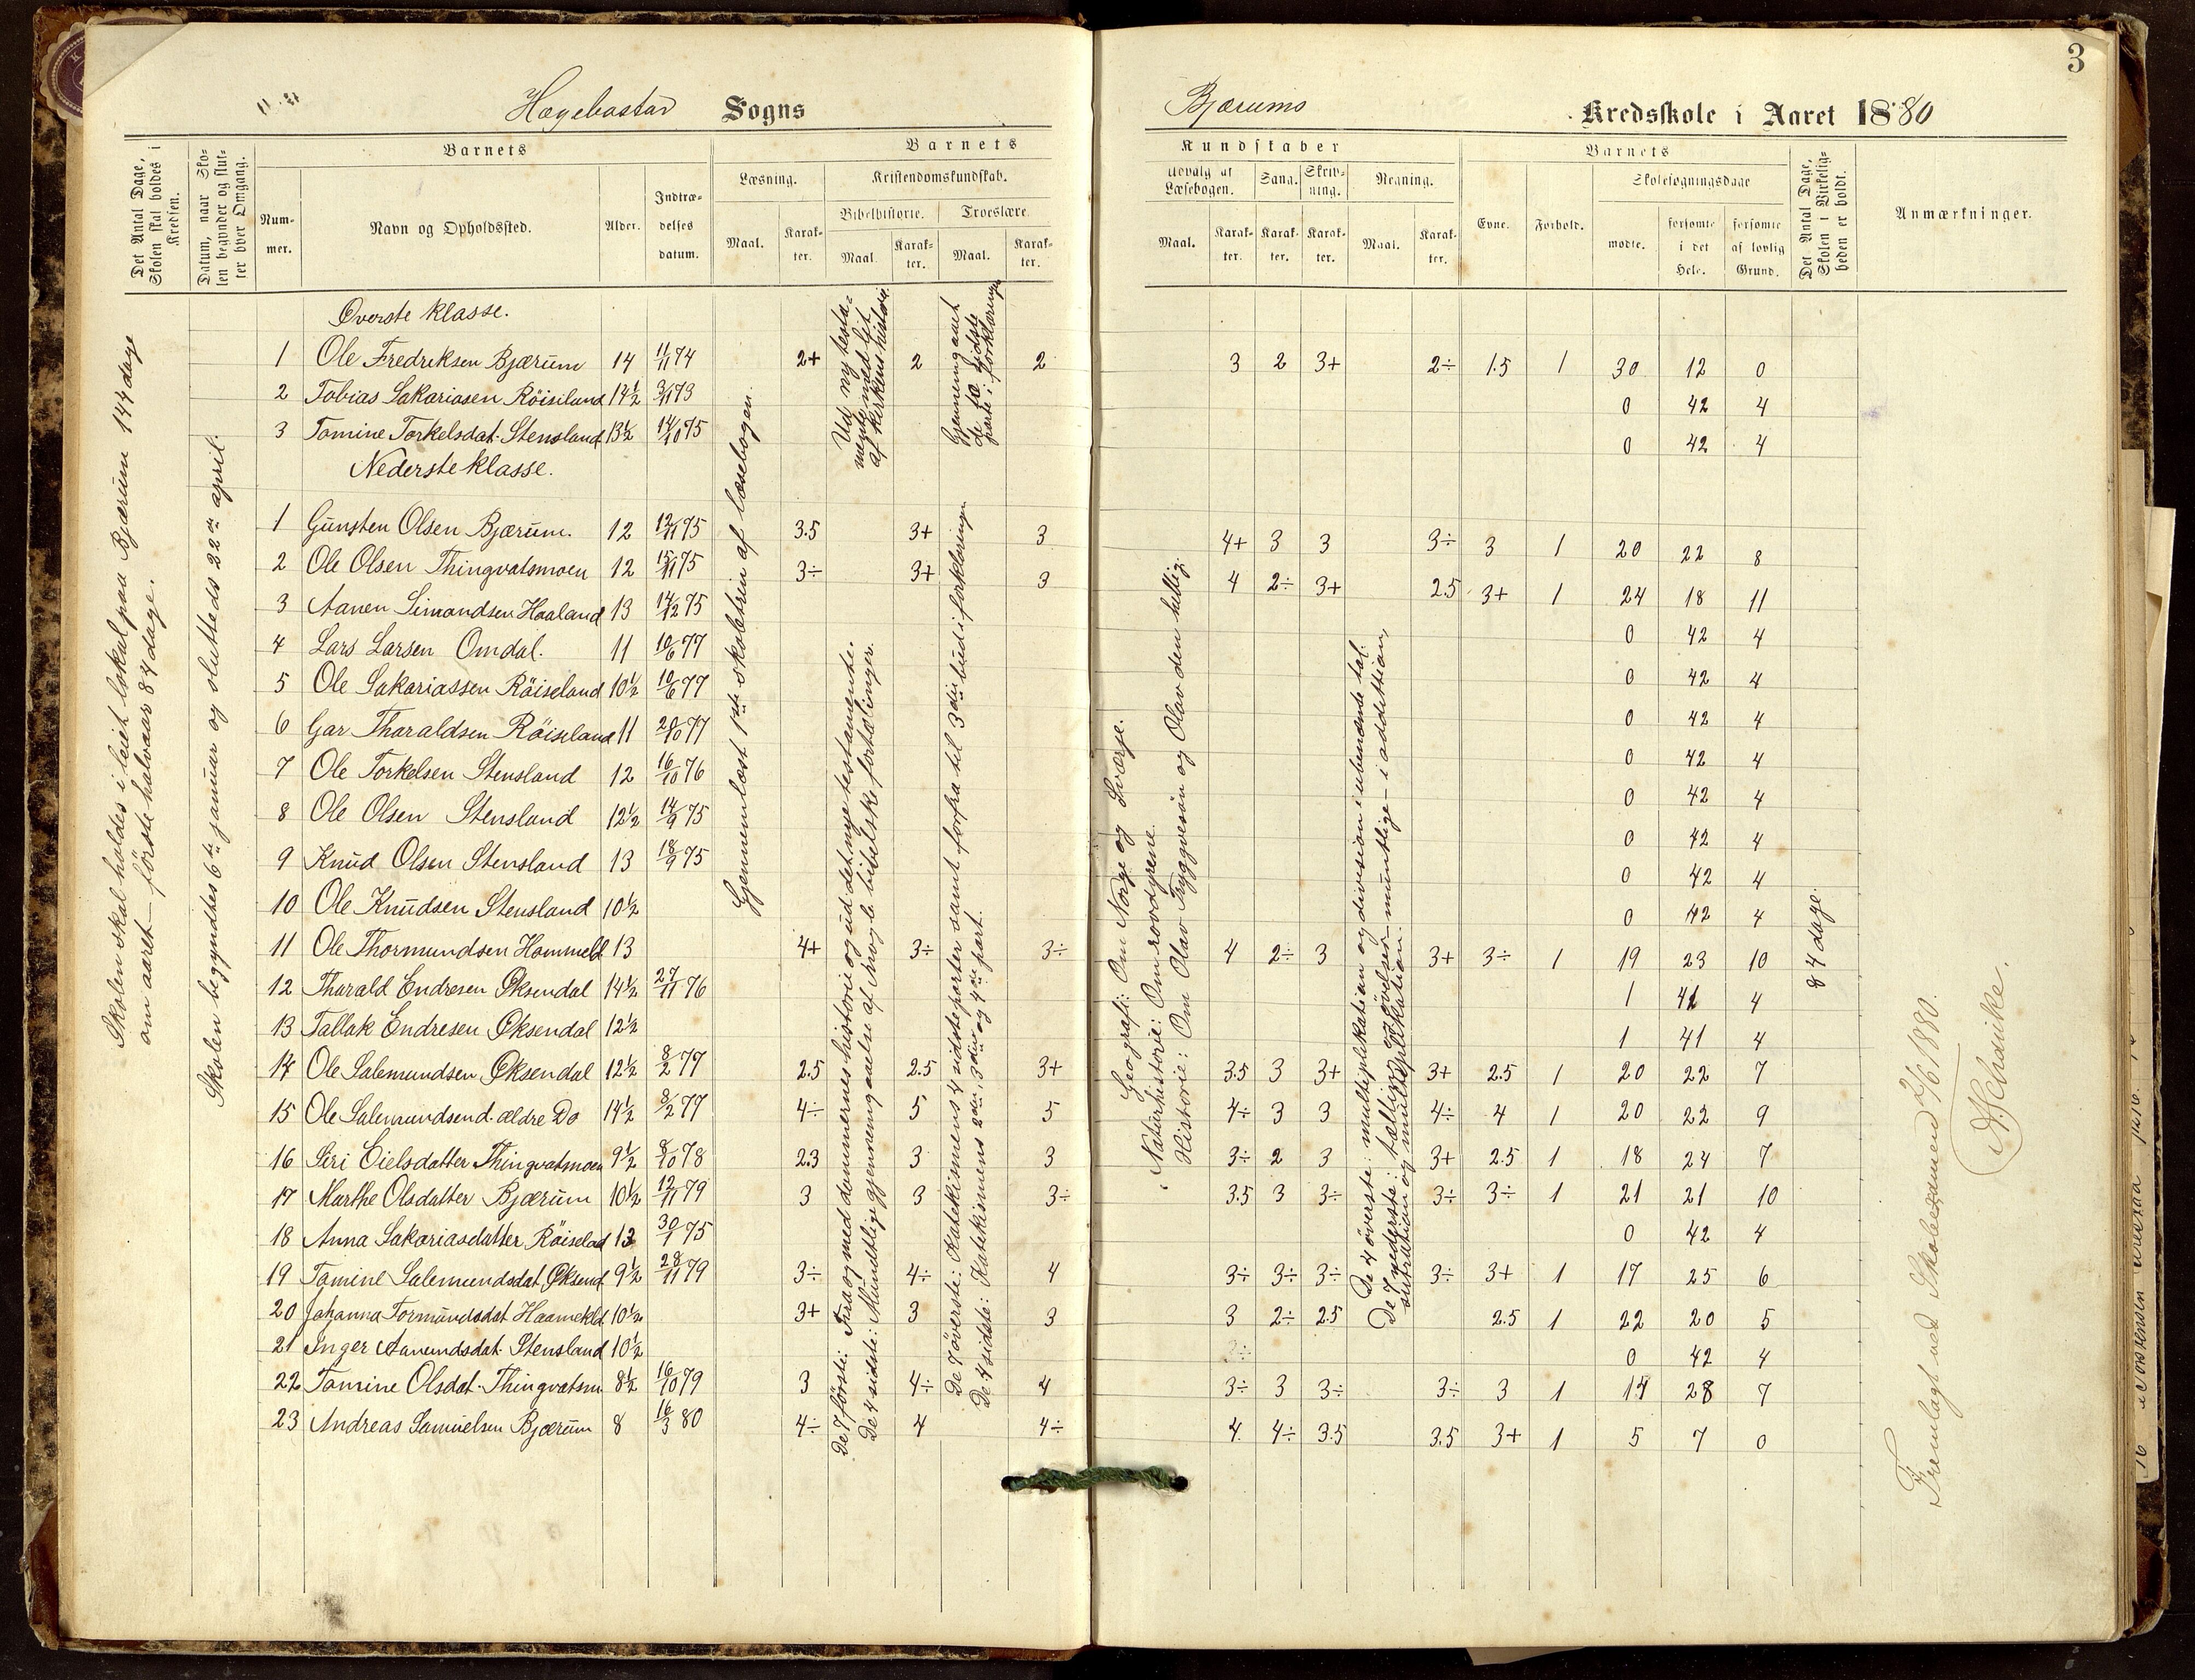 3
Hægebostad Sogns
Bjærums Kredsskole i Aaret 1880
Det Antal Dage, Skolen skal holdes i Kredsen.
Datum, naar Skolen begynder og slutter hver Omgang.
Barnets
Nummer. Navn og Opholdssted. Alder. Indtrædelses datum.
Barnets
Læsning. Kristendomskundskab.
Bibelhistorie. Troeslære.
Maal. Karakter. Maal. Karakter. Maal. Karakter.
Kundskaber
Udvalg af Læsebogen. Sang. Skrivning. Regning.
Maal. Karakter. Karakter. Karakter. Maal. Karakter.
Barnets
Evne. Forhold. Skolesøgningsdage
mødte. forsømte i det Hele. forsømte af lovlig Grund.
Det Antal Dage, Skolen i Virkeligheden er holdt.
Anmærkninger.
Skolen skal holdes i leiet lokal paa Bjærum 144 dage
om aaret – förste halvaar 84 dage.
Skolen begyndtes 6te januar og sluttedes 22de april.
Överste klasse.
1 Ole Fredriksen Bjærum 14 11/11 74 2+ 2 2 3 2 3+ 2÷ 1.5 1 30 12 0
2 Tobias Sakariasen Röisiland 14½ 3/11 73 0 42 4
3 Tomine Torkelsdat. Stensland 13½ 14/10 75 0 42 4
Nederste klasse.
1 Gunsten Olsen Bjærum. 12 12/11 75 3.5 3+ 3 4+ 3 3 3÷ 3 1 20 22 8
2 Ole Olsen Thingvatsmoen 12 15/11 75 3÷ 3+ 3 4 2÷ 3+ 2.5 3+ 1 24 18 11
3 Aanen Simondsen Haaland 13 14/12 75 0 42 4
4 Lars Larsen Omdal. 11 10/6 77 0 42 4
5 Ole Sakariassen Röiseland 10½ 10/6 77 0 42 4
6 Gar Tharaldsen Röiseland 11 20/10 77 0 42 4
7 Ole Torkelsen Stensland 12 16/10 76 0 42 4
8 Ole Olsen Stensland 12½ 14/9 75 0 42 4
9 Knud Olsen Stensland 13 18/9 75 0 42 4
10 Ole Knudsen Stensland 10½ 0 42 4
11 Ole Thormundsen Hommeld 13 4+ 3÷ 3÷ 4 2÷ 3 3+ 3÷ 1 19 23 10
12 Tharald Endresen Øksendal 14½ 27/11 76 1 41 4
13 Tallak Endresen Øksendal 12½ 1 41 4
14 Ole Salemundsen Øksendal 12½ 8/2 77 2.5 2.5 3+ 3.5 3 3+ 3+ 2.5 1 20 22 7
15 Ole Salemundsen d. ældre Do 14½ 8/2 77 4÷ 5 5 4÷ 3 3 4÷ 4 1 20 22 9
16 Siri Eielsdatter Thingvatsmoen 9½ 8/10 78 2.3 3 3 3÷ 2 3 3+ 2.5 1 18 24 7
17 Marthe Olsdatter Bjærum 10½ 12/11 79 3 3 3÷ 3.5 3 3÷ 3÷ 3÷ 1 21 21 10
18 Anna Sakariasdatter Röiselad 13 30/1 75 0 42 4
19 Tomine Salemundsdat. Øksend 9½ 28/11 79 3÷ 4÷ 4 3÷ 3÷ 3÷ 3÷ 3+ 1 17 25 6
20 Johanna Tormundsdat Haamekld 10½ 3+ 3 3 3 2÷ 2.5 2.5 1 22 20 5
21 Inger Aanundsdat. Stensland 10½ 0 42 4
22 Tomine Olsdat. Thingvatsm 8½ 16/10 79 3 4÷ 4 3÷ 3 3÷ 3÷ 3 1 14 28 7
23 Andreas Samuelsen Bjærum 8 16/3 80 4÷ 4 4÷ 4 4÷ 3.5 3.5 3+ 1 5 7 0
Gjennemlæst 1ste skoletrin af læsebogen.
Ud ny testamente med lit af kirkens historie.
De 7 förste: Fra og med dommernes historie og ud det nye testamente.
De 4 sidste: Mundtlig gjennemgaaelse af nogle bibelske fortælinger.
Gjennemgaaet de to sidste parte i forklaringe
De 7 överste: Katekismens 4 sidste parter samt forfra til 3die bud i forklaringe.
De 4 sidste: Katekismens 2den, 3die og 4de part.
Geografi: Om Norge og Sverje.
Naturhistorie: Om rovdyrene.
Historie: Om Olav Tryggvesön og Olav den hellige.
De 4 överste: multiplikation og division i ubenævnte tal.
De 7 nederste: tællige övelser – muntlige – i addettion,
suttraktion og multeplikation.
84 dage.
Fremlagt ved Skolexamen 2/6 1880.